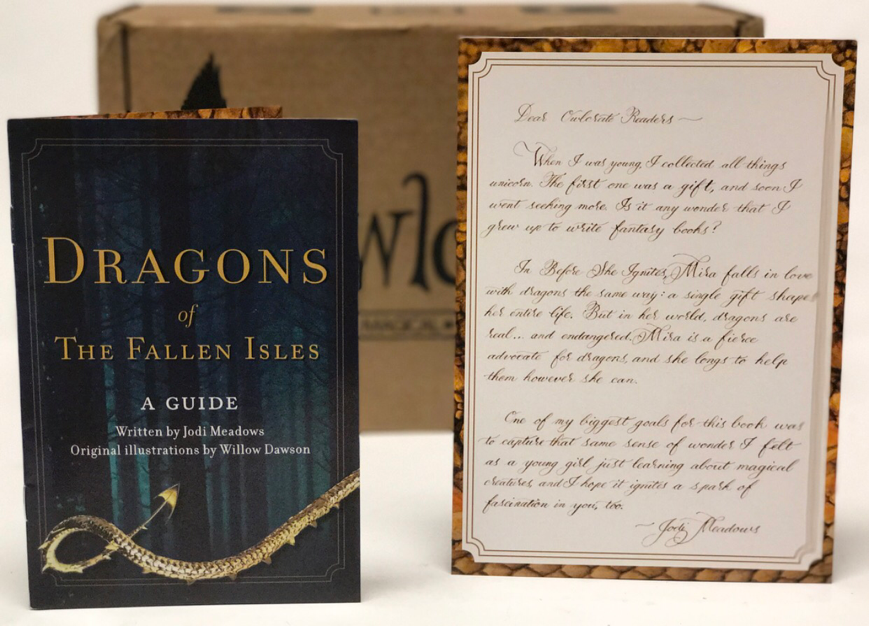 DRAGONS
of
THE FALLEN ISLES
A GUIDE
Written by Jodi Meadows
Original illustrations by Willow Dawson
Dear Owlcrate Readers ~
When I was young, I collected all things
unicorn. The first one was a gift, and soon I
went seeking more. Is it any wonder that I
grew up to write fantasy books?
In Before She Ignites, Mira falls in love
with dragons the same way: a single gift shapes
her entire life. But in her world, dragons are
real... and endangered. Mira is a fierce
advocate for dragons, and she longs to help
them however she can.
One of my biggest goals for this book was
to capture that same sense of wonder I felt
as a young girl just learning about magical
creatures, and I hope it ignites a spark of
fascination in you, too.
~ Jodi Meadows